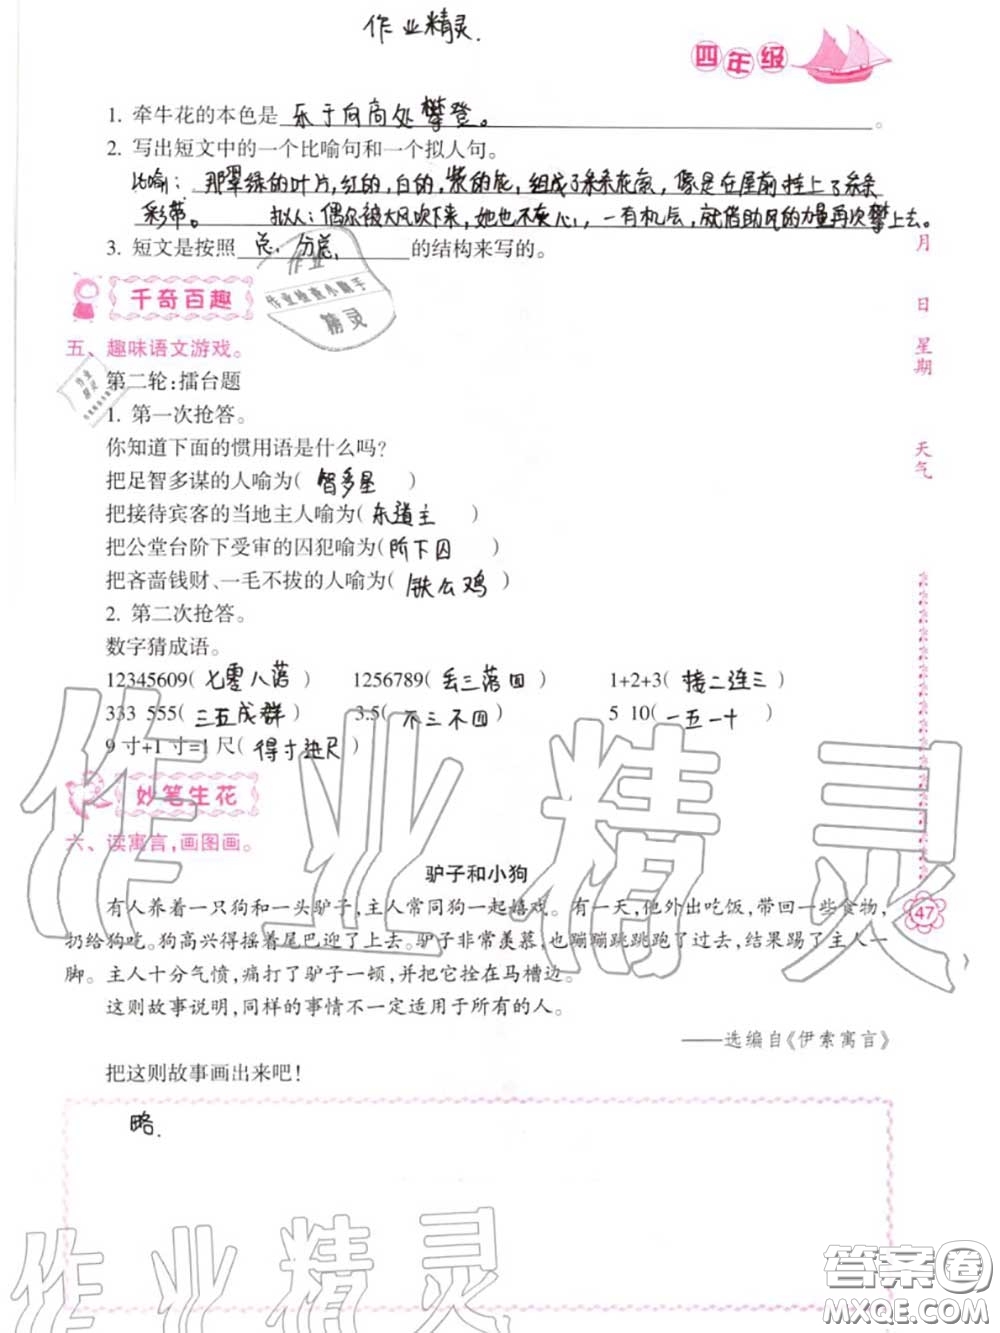 作业精灵.
四年级
1. 牵牛花的本色是 乐于向高处攀登。 。
2. 写出短文中的一个比喻句和一个拟人句。
比喻：那翠绿的叶片,红的,白的,紫的花,组成了条条花氛,像是在屋前挂上了条条
彩带。 拟人:偶尔被大风吹下来,她也不灰心,,一有机会,就借助风的力量再次攀上去。
3. 短文是按照 总,分总, 的结构来写的。
月 日 星期 天气
作业
作业检查小助手
精灵
千奇百趣
五、趣味语文游戏。
第二轮:擂台题
1. 第一次抢答。
你知道下面的惯用语是什么吗?
把足智多谋的人喻为( 智多星 )
把接待宾客的当地主人喻为( 东道主 )
把公堂台阶下受审的囚犯喻为( 阶下囚 )
把吝啬钱财、一毛不拔的人喻为( 铁公鸡 )
2. 第二次抢答。
数字猜成语。
12345609( 七零八落 ) 1256789( 丢三落四 ) 1+2+3( 接二连三 )
333 555( 三五成群 ) 3.5( 不三不四 ) 5 10( 一五一十 )
9 寸+1 寸=1 尺( 得寸进尺 )
妙笔生花
六、读寓言,画图画。
驴子和小狗
有人养着一只狗和一头驴子,主人常同狗一起嬉戏。有一天,他外出吃饭,带回一些食物,
扔给狗吃。狗高兴得摇着尾巴迎了上去。驴子非常羡慕,也蹦蹦跳跳跑了过去,结果踢了主人一
脚。主人十分气愤,痛打了驴子一顿,并把它拴在马槽边。
这则故事说明,同样的事情不一定适用于所有的人。
——选编自《伊索寓言》
47
把这则故事画出来吧!
略.
作业精灵
作业精灵
答案卷
MXQE.COM